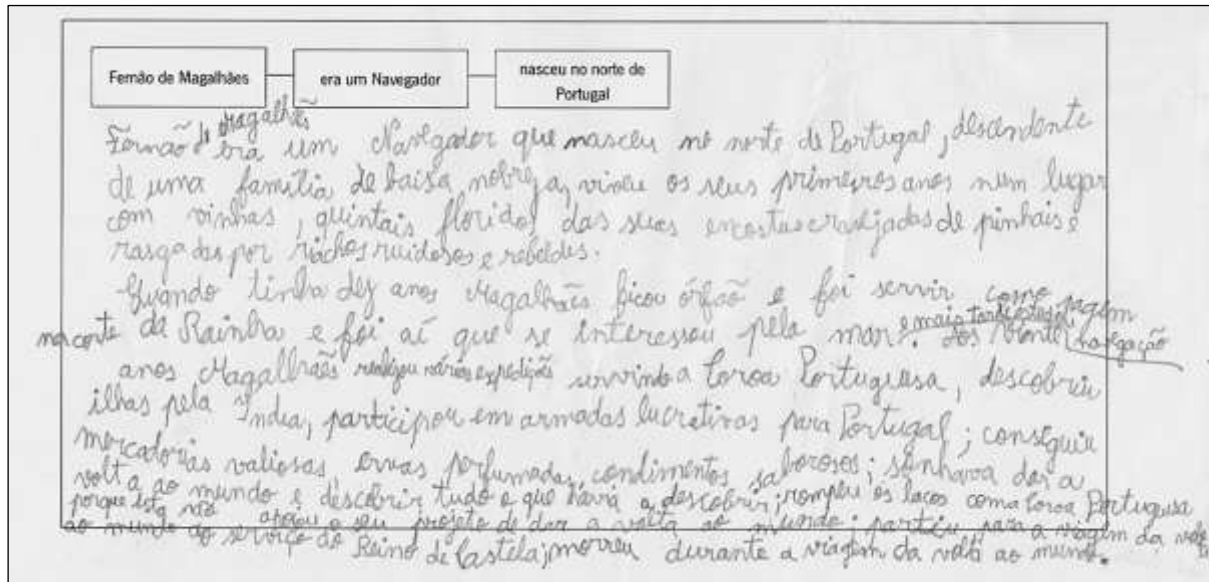 Fernão de Magalhães
era um Navegador
nasceu no norte de
Portugal
Fernão de Magalhães era um Navegador que nasceu no norte de Portugal, descendente
de uma família de baixa nobreza, viveu os seus primeiros anos num lugar
com vinhas, quintais floridos das suas encostas cravejadas de pinhais e
rasgadas por riachos ruidosos e rebeldes.
Quando tinha dez anos Magalhães ficou órfão e foi servir como pagem
na corte da Rainha e foi aí que se interessou pela mar e mais tarde estudou navegação. Aos vinte
anos Magalhães realizou várias expedições servindo a Coroa Portuguesa, descobriu
ilhas pela Índia, participou em armadas lucrativas para Portugal; conseguiu
mercadorias valiosas, ervas perfumadas, condimentos saborosos; sonhava dar a
volta ao mundo e descobrir tudo o que havia a descobrir; rompeu os laços com a Coroa Portugusa
porque esta não apoiou o seu projeto de dar a volta ao mundo; partiu para a viagem da volta
ao mundo ao serviço do Reino de Castela; morreu durante a viagem da volta ao mundo.